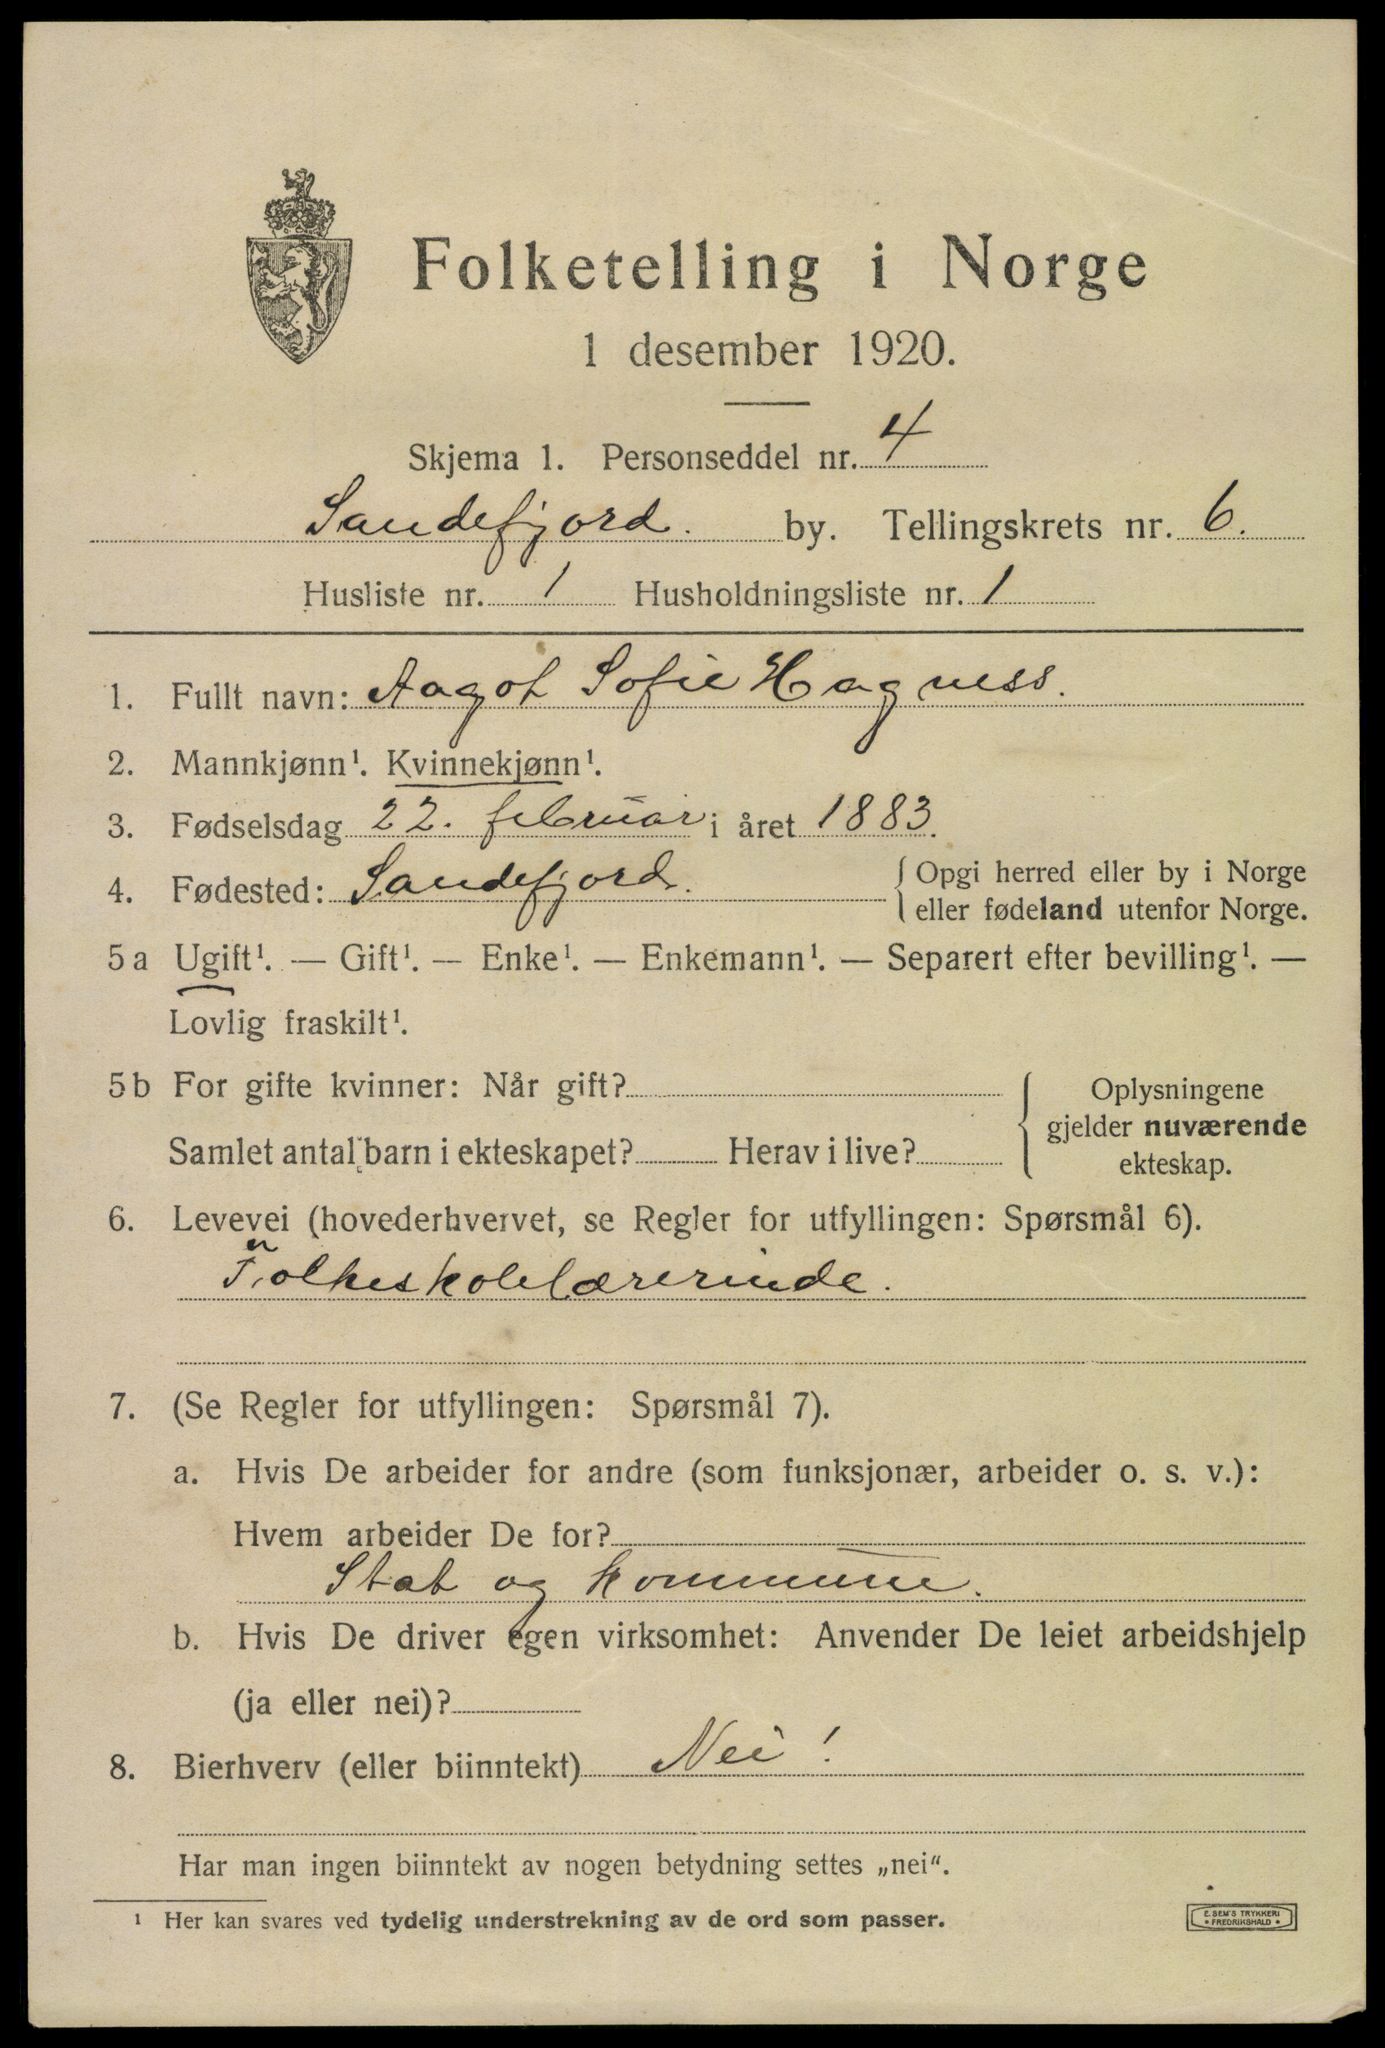 Folketelling i Norge
1 desember 1920.
Skjema 1. Personseddel nr. 4
Sandefjord. by. Tellingskrets nr. 6.
Husliste nr. 1 Husholdningsliste nr. 1
1. Fullt navn: Aagot Sofie Hagness.
2. Mannkjønn¹. Kvinnekjønn¹.
3. Fødselsdag 22. februar i året 1883.
4. Fødested: Sandefjord. { Opgi herred eller by i Norge
eller fødeland utenfor Norge.
5 a Ugift¹. — Gift¹. — Enke¹. — Enkemann¹. — Separert efter bevilling¹. —
Lovlig fraskilt¹.
5 b For gifte kvinner: Når gift? { Oplysningene
gjelder nuværende
Samlet antal barn i ekteskapet? Herav i live?
ekteskap.
6. Levevei (hovederhvervet, se Regler for utfyllingen: Spørsmål 6).
Folkeskolelærerinde.
7. (Se Regler for utfyllingen: Spørsmål 7).
a. Hvis De arbeider for andre (som funksjonær, arbeider o. s. v.):
Hvem arbeider De for?
Stat og kommune.
b. Hvis De driver egen virksomhet: Anvender De leiet arbeidshjelp
(ja eller nei)?
8. Bierhverv (eller biinntekt) Nei!
Har man ingen biinntekt av nogen betydning settes „nei“.
¹ Her kan svares ved tydelig understrekning av de ord som passer.
E. SEM'S TRYKKERI
• FREDRIKSHALD •